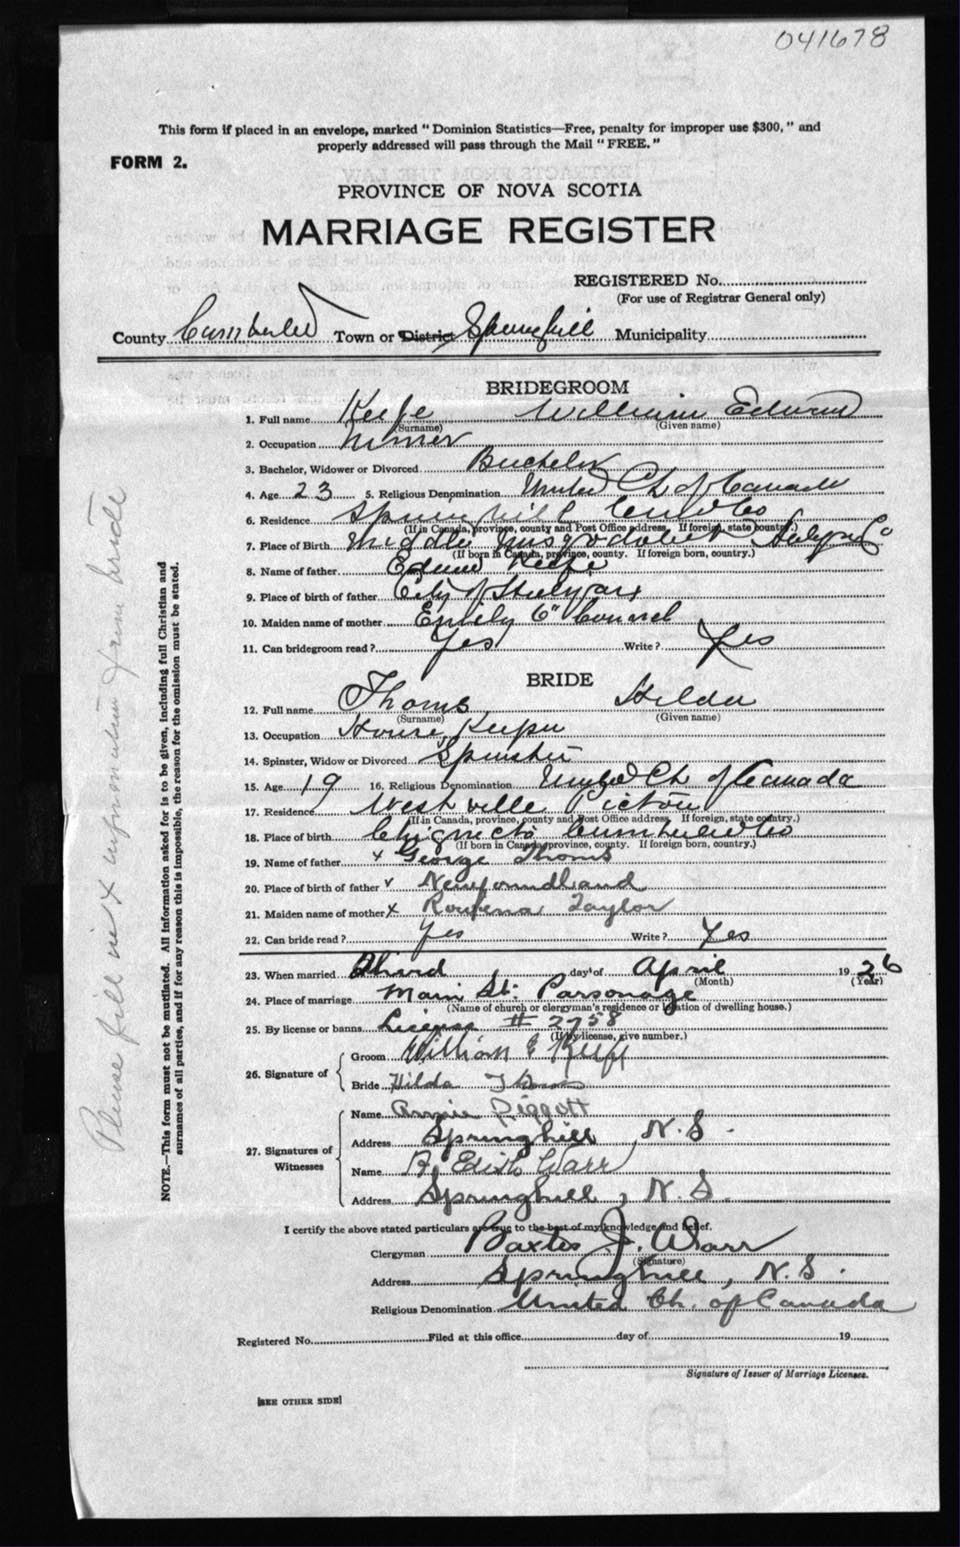 041678
This form if placed in an envelope, marked "Dominion Statistics—Free, penalty for improper use $300," and
properly addressed will pass through the Mail "FREE."
FORM 2.
PROVINCE OF NOVA SCOTIA
MARRIAGE REGISTER
REGISTERED No.
(For use of Registrar General only)
County Cumberland Town or District Springhill Municipality
BRIDEGROOM
1. Full name Keefe William Edward
(Surname) (Given name)
2. Occupation Miner
3. Bachelor, Widower or Divorced Bachelor
4. Age 23 5. Religious Denomination United Ch of Canada
6. Residence Springhill Cumb Co
(If in Canada, province, county and Post Office address. If foreign, state country.)
7. Place of Birth Middle Musquodoboit Halifax Co
(If born in Canada, province, county. If foreign born, country.)
8. Name of father Edward Keefe
9. Place of birth of father City of Halifax
10. Maiden name of mother Emily
11. Can bridegroom read? Yes Write? Yes
BRIDE
12. Full name Thoms Hilda
(Surname) (Given name)
13. Occupation House Keeper
14. Spinster, Widow or Divorced Spinster
15. Age 19 16. Religious Denomination United Ch of Canada
17. Residence Westville Pictou
(If in Canada, province, county and Post Office address. If foreign, state country.)
18. Place of birth Chignecto Cumberland Co
(If born in Canada, province, county. If foreign born, country.)
19. Name of father x George Thoms
20. Place of birth of father v Newfoundland
21. Maiden name of mother x Rowena Taylor
22. Can bride read? Yes Write? Yes
23. When married Third day of April 1926
(Month) (Year)
24. Place of marriage Main St. Parsonage
(Name of church or clergyman's residence or location of dwelling house.)
25. By license or banns License # 2758
(If by license, give number.)
26. Signature of
Groom William E Keefe
Bride Hilda Thoms
27. Signatures of Witnesses
Name Annie Piggott
Address Springhill, N.S.
Name R. Edith Warr
Address Springhill, N.S.
I certify the above stated particulars are true to the best of my knowledge and belief.
Clergyman Baxter J. Warr
(Signature)
Address Springhill, N.S.
Religious Denomination United Ch. of Canada
Registered No. Filed at this office day of 19
Signature of Issuer of Marriage Licenses.
[SEE OTHER SIDE]
NOTE.—This form must not be mutilated. All information asked for is to be given, including full Christian and
surnames of all parties, and if for any reason this is impossible, the reason for the omission must be stated.
Please fill in x information from bride